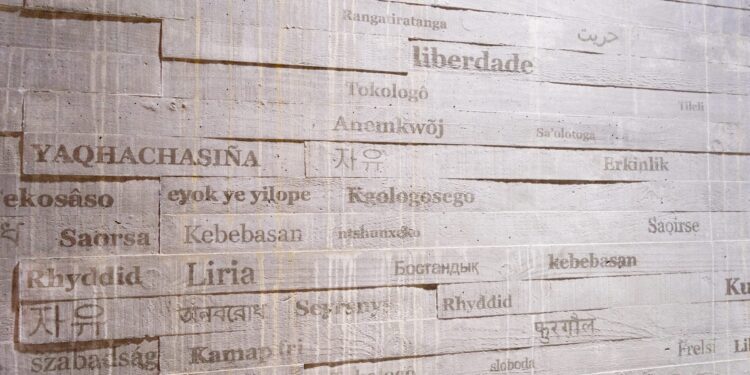 Rangatiratanga
حريت
liberdade
Tokologô
Tileli
Anemkwõj
Sa'olotoga
YAQHACHASIÑA
자유
Erkinlik
ekosâso
eyok ye yilope
Kgologosego
Saorsa
Kebebasan
ntshunxeko
Saoirse
Rhyddid
Liria
Бостандық
kebebasan
Ku
자유
অনবরোধ
Seyrsnys
Rhyddid
फुरगौल
szabadság
Kamap fri
sloboda
Frelsi